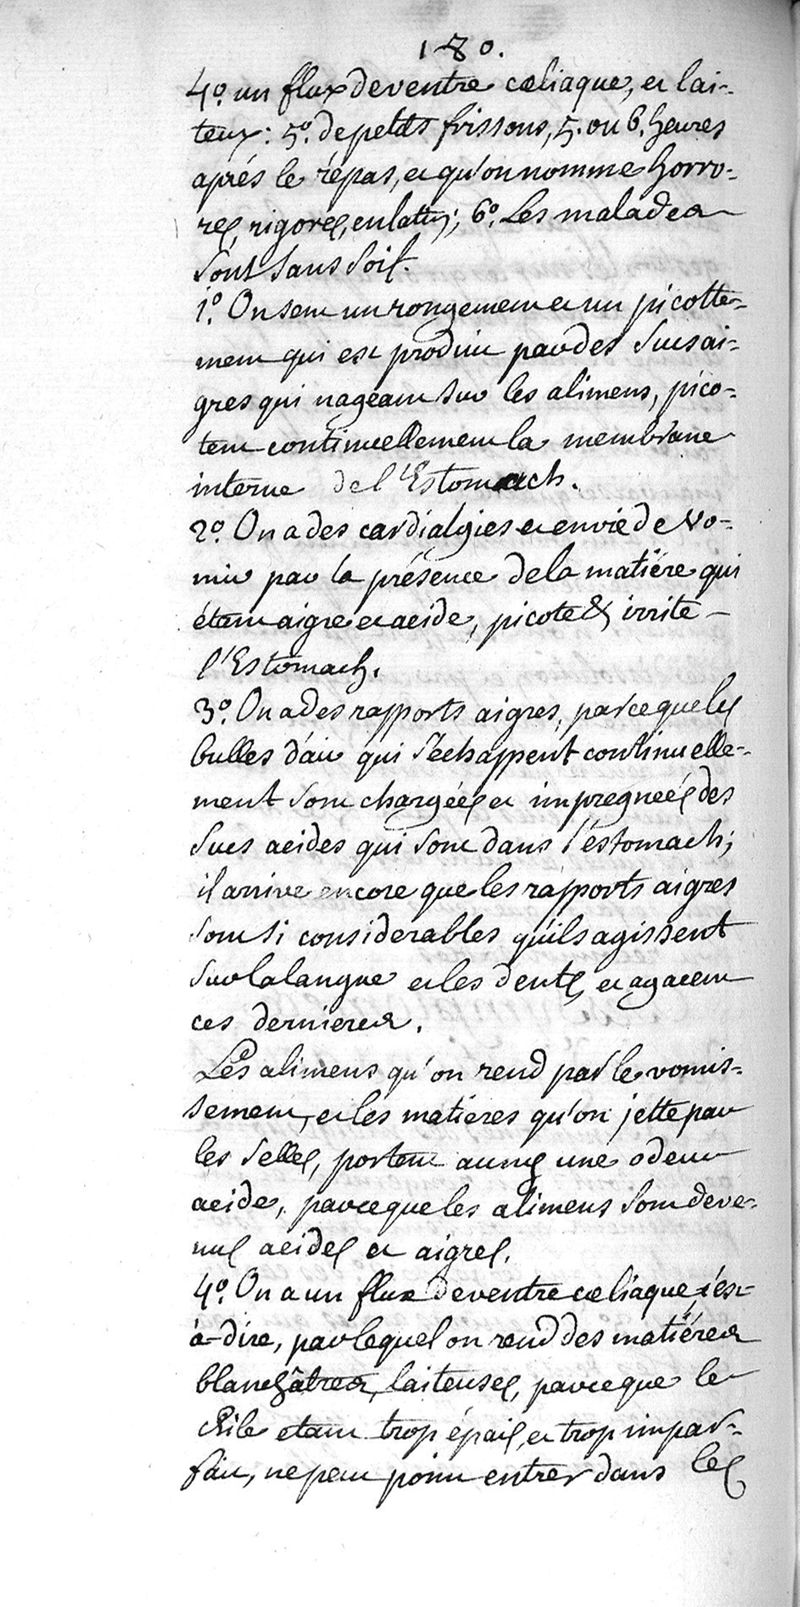 180.
4º. un flux de ventre cœliaque, et lai-
teux: 5º. de petits frissons, 5. ou 6. heures
aprés le répas, et qu'on nomme horro-
res, rigores, en latin; 6º. Les malades
sont sans soif.
1º. On sent un rongement et un picotte-
ment qui est produit par des sucs ai-
gres qui nageant sur les alimens, pico-
tent continuellement la membrane
interne de l'Estomach.
2º. On a des cardialgies et envie de vo-
mir par la présence de la matiére qui
étant aigre et acide, picote & irrite
l'Estomach.
3º. On a des rapports aigres, parce que les
bulles d'air qui s'échappent continuelle-
ment sont chargées et impregneés des
sucs acides qui sont dans l'éstomach;
il arrive encore que les rapports aigres
sont si considerables qu'ils agissent
sur la langue et les dents, et agacent
ces dernieres.
Les alimens qu'on rend par le vomis-
sement, et les matieres qu'on jette par
les selles, portent aussy une odeur
acide, parce que les alimens sont deve-
nus acides et aigres.
4º. On a un flux de ventre cœliaque, c'est-
à-dire, par lequel on rend des matiéres
blanchâtres, laiteuses, parce que le
chile etant trop épais, et trop impar-
fait, ne peut point entrer dans les